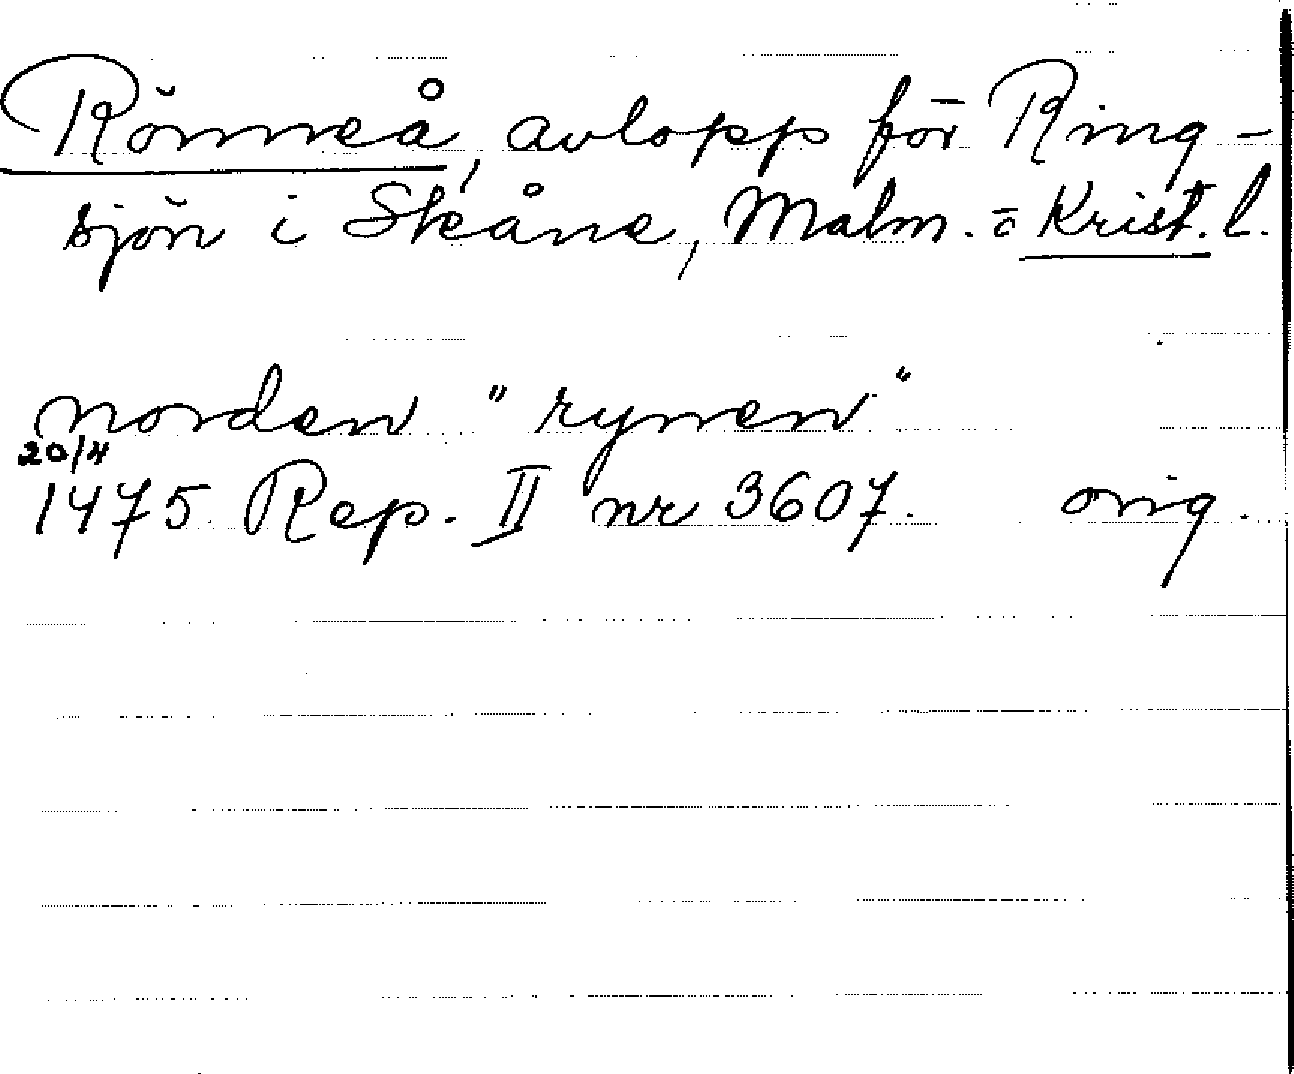 Rönneå, avlopp för Ring-
sjön i Skåne, Malm. o Krist. l.
norden "rynen"
20/4
1475 Rep. II nr 3607. orig.